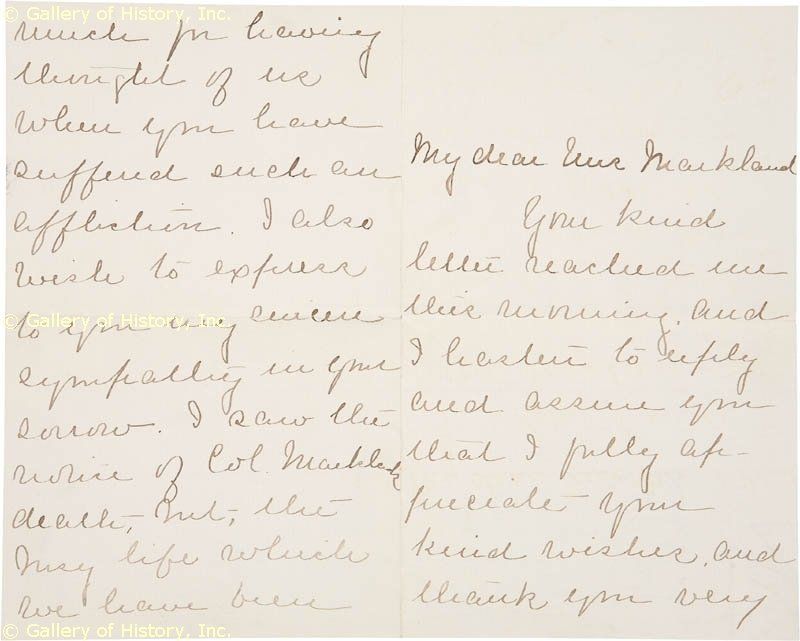 © Gallery of History, Inc.
My dear Mrs Markland
Your kind
letter reached me
this morning, and
I hasten to reply
and assure you
that I fully ap-
preciate your
kind wishes, and
thank you very
much for having
thought of us
when you have
suffered such an
affliction. I also
wish to express
© Gallery of History, Inc.
to you my sincere
sympathy in your
sorrow. I saw the
notice of Col. Markland's
death, but, the
busy life which
we have been
© Gallery of History, Inc.